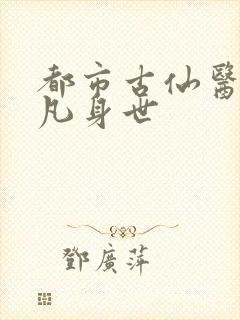 都市古仙醫
凡身世
鄧廣萍